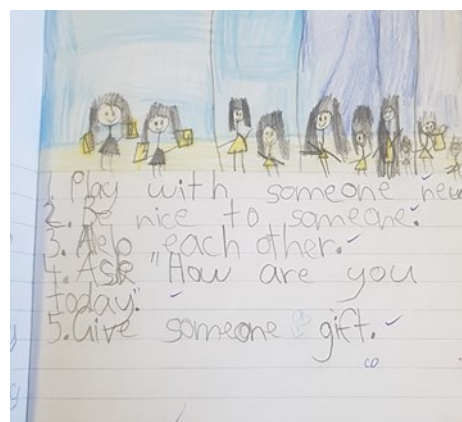 1. Play with someone new
2. Be nice to someone.
3. Help each other.
4. Ask "How are you
today."
5. Give someone a gift.